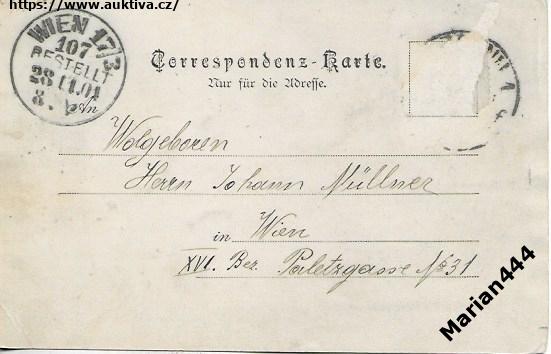 https://www.auktiva.cz/
WIEN 17/3
107
BESTELLT
28 11.01
8.
Correspondenz-Karte.
Nur für die Adresse.
An
Wolgeboren
Herrn Johann Müllner
in Wien
XVI. Bez. Paletzgasse No 31
Marian444